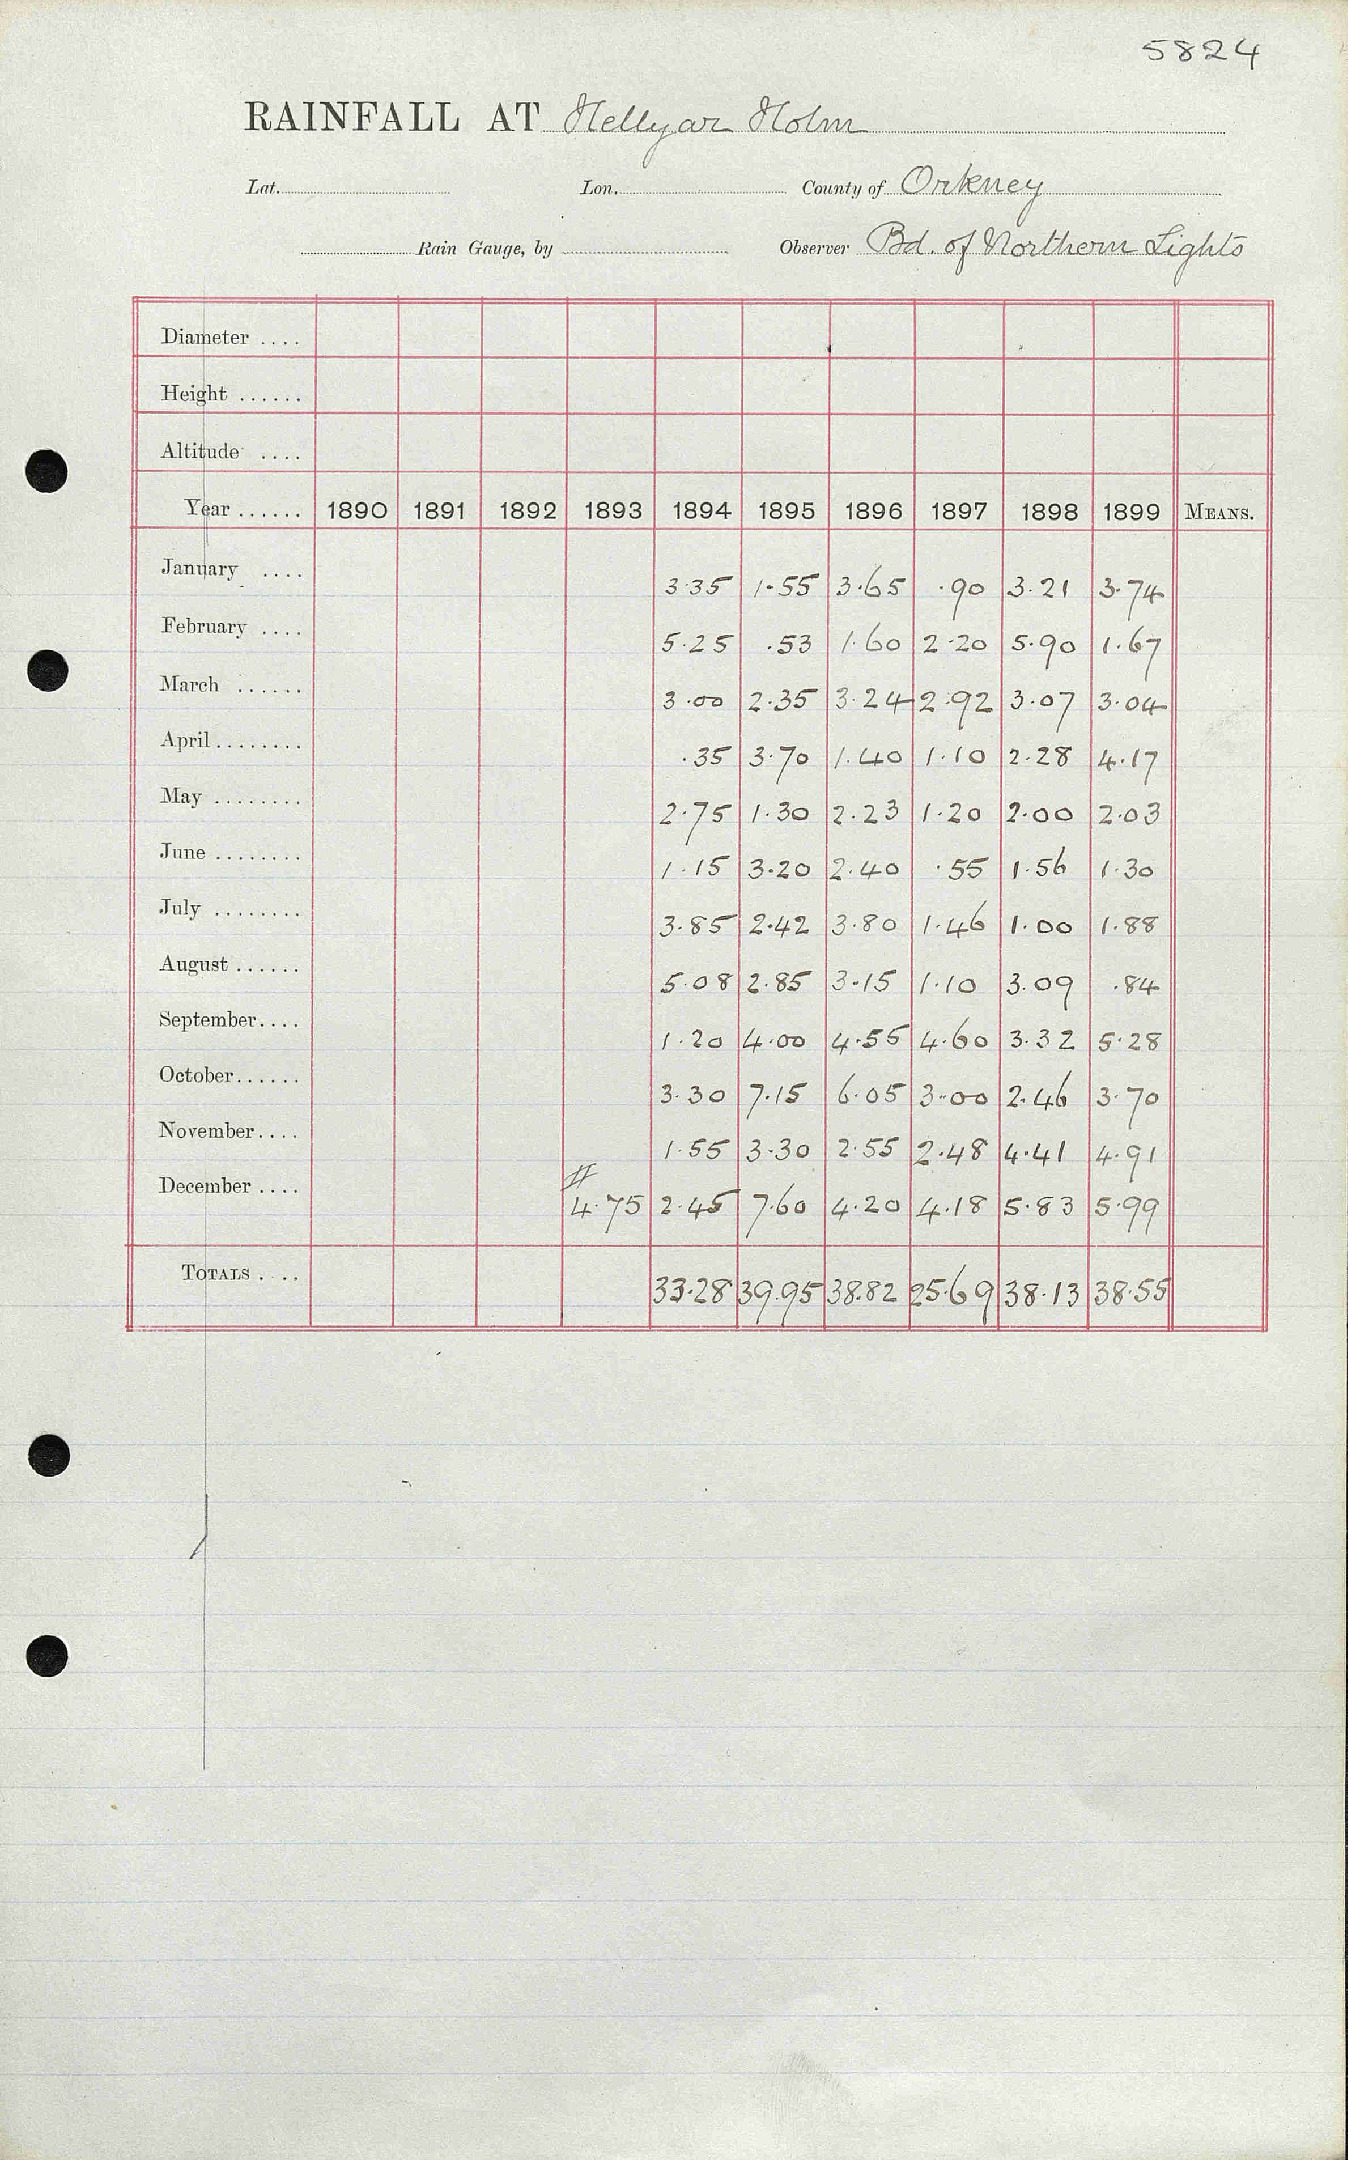 5824
RAINFALL AT Hellyar Holm
Lat. Lon. County of Orkney
Rain Gauge, by Observer Bd. of Northern Lights
Diameter ....
Height ......
Altitude ....
Year ...... 1890 1891 1892 1893 1894 1895 1896 1897 1898 1899 MEANS.
January .... 3.35 1.55 3.65 .90 3.21 3.74
February .... 5.25 .53 1.60 2.20 5.90 1.67
March ...... 3.00 2.35 3.24 2.92 3.07 3.04
April ........ .35 3.70 1.40 1.10 2.28 4.17
May ........ 2.75 1.30 2.23 1.20 2.00 2.03
June ........ 1.15 3.20 2.40 .55 1.56 1.30
July ........ 3.85 2.42 3.80 1.46 1.00 1.88
August ...... 5.08 2.85 3.15 1.10 3.09 .84
September.... 1.20 4.00 4.55 4.60 3.32 5.28
October...... 3.30 7.15 6.05 3.00 2.46 3.70
November.... 1.55 3.30 2.55 2.48 4.41 4.91
#
December .... 4.75 2.45 7.60 4.20 4.18 5.83 5.99
TOTALS .... 33.28 39.95 38.82 25.69 38.13 38.55